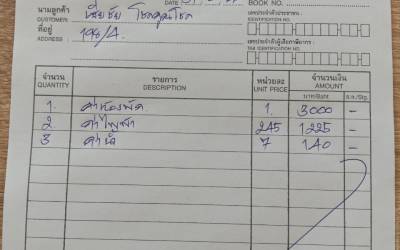 DATE
BOOK NO.
นามลูกค้า
CUSTOMER
ที่อยู่ 199/A.
ADDRESS
เลขประจำตัวประชาชน
IDENTIFICATION NO.
เลขประจำตัวผู้เสียภาษีอากร
TAX IDENTIFICATION NO.
จำนวน รายการ หน่วยละ จำนวนเงิน
QUANTITY DESCRIPTION UNIT PRICE AMOUNT
บาท/Baht ส.ต./Stg.
1. ค่าห้องพัก 1. 3000 -
2 ค่าไฟฟ้า 245 1225 -
3 ค่าน้ำ 7 140 -